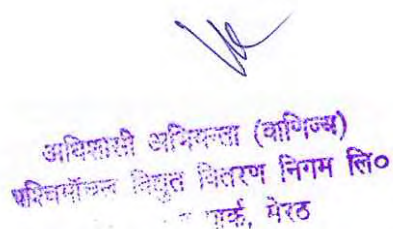 अधिशासी अभियन्ता (वाणिज्य)
पश्चिमांचल विद्युत वितरण निगम लि०
पार्क, मेरठ